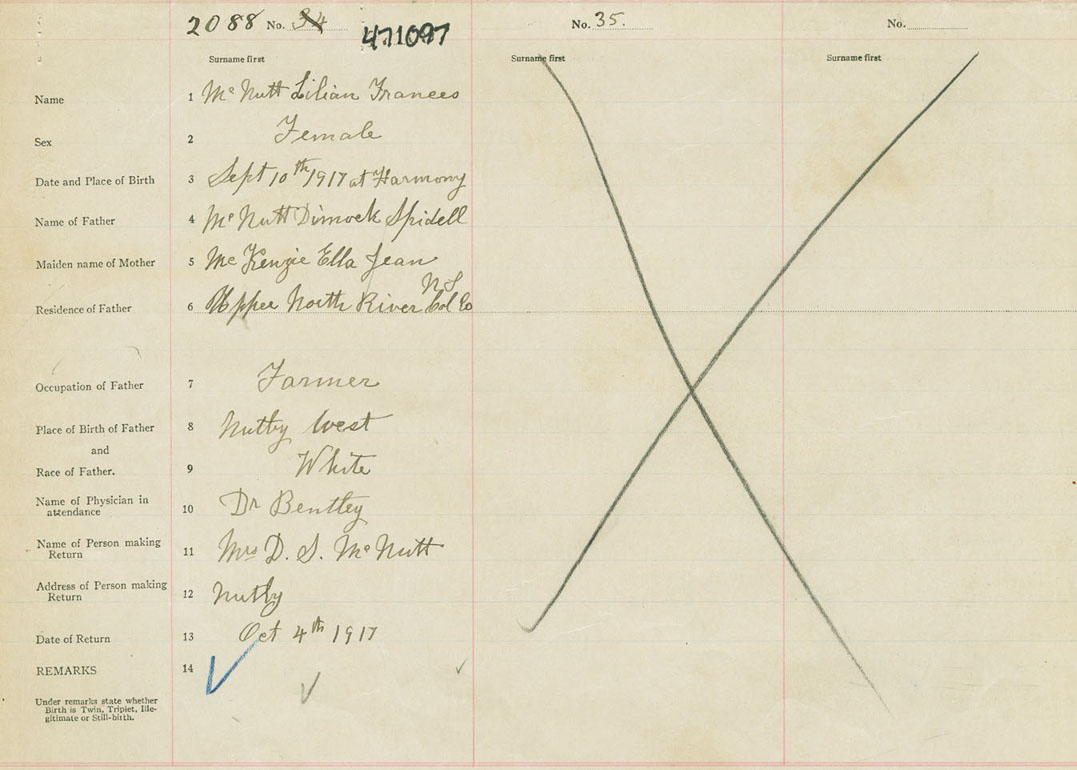 2088 No. 34 471097 No. 35. No.
Surname first Surname first Surname first
Name 1 McNutt Lilian Frances
Sex 2 Female
Date and Place of Birth 3 Sept 10th 1917 at Harmony
Name of Father 4 McNutt Dimock Spidell
Maiden name of Mother 5 McKenzie Ella Jean
N.S
Residence of Father 6 Upper North River Col Co
Occupation of Father 7 Farmer
Place of Birth of Father 8 Nuttby West
and
Race of Father. 9 White
Name of Physician in
attendance 10 Dr Bentley
Name of Person making
Return 11 Mrs D. S. McNutt
Address of Person making
Return 12 Nuttby
Date of Return 13 Oct 4th 1917
REMARKS 14
Under remarks state whether
Birth is Twin, Triplet, Ille-
gitimate or Still-birth.